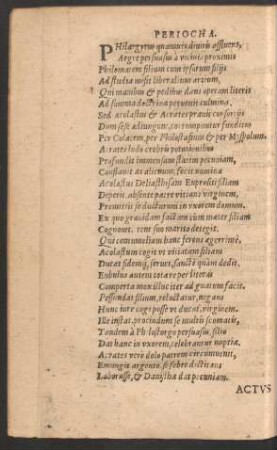 PERIOCHA.
PHilargyrus quamuis diuitijs affluens,
Aegre persuasus à vicinis proximis
Philomatem filium cum ipsorum filijs
Ad studia misit liberalium artium,
Qui manibus & pedibus dans operam literis
Ad summa doctrinæ peruenit culmina,
Sed Acolastus & Acrates prauis consortijs
Dum sese adiungunt, corrumpuntur funditus
Per Colacem, per Philostasinum & per Misoponum.
Acrates ludo crebris potationibus
Profundit immensam patris pecuniam,
Conflauit æs alienum, fecit nomina
Acolastus Deliasthisam Euprositi filiam
Deperit, absente patre vitians virginem,
Promittit se ducturum in vxorem domum.
Ex quo grauidam factam cum mater filiam
Cognouit, rem suo marito detegit.
Qui contumeliam hanc ferens ægerrimè,
Acolastum cogit vt vitiatam filiam
Ducat sidem'que seruet, sanctè quam dedit.
Eubulus autem cum rem per literas
Comperta mox illuc iter ad gnatum facit.
Pessundat filium, reluctatur, negans
Hunc iure cogi posse vt ducat virginem.
Ille instat, pro eiusdem se multis scommatis,
Tandem à Philostorgo persuasus, filio
Dat hanc in vxorem, celebrantur nuptiæ.
Acrates verò dolo patrem circumuenit,
Emungit argento, se febre dicit
Laborasse, & Danistæ dat pecuniam.
ACTVS